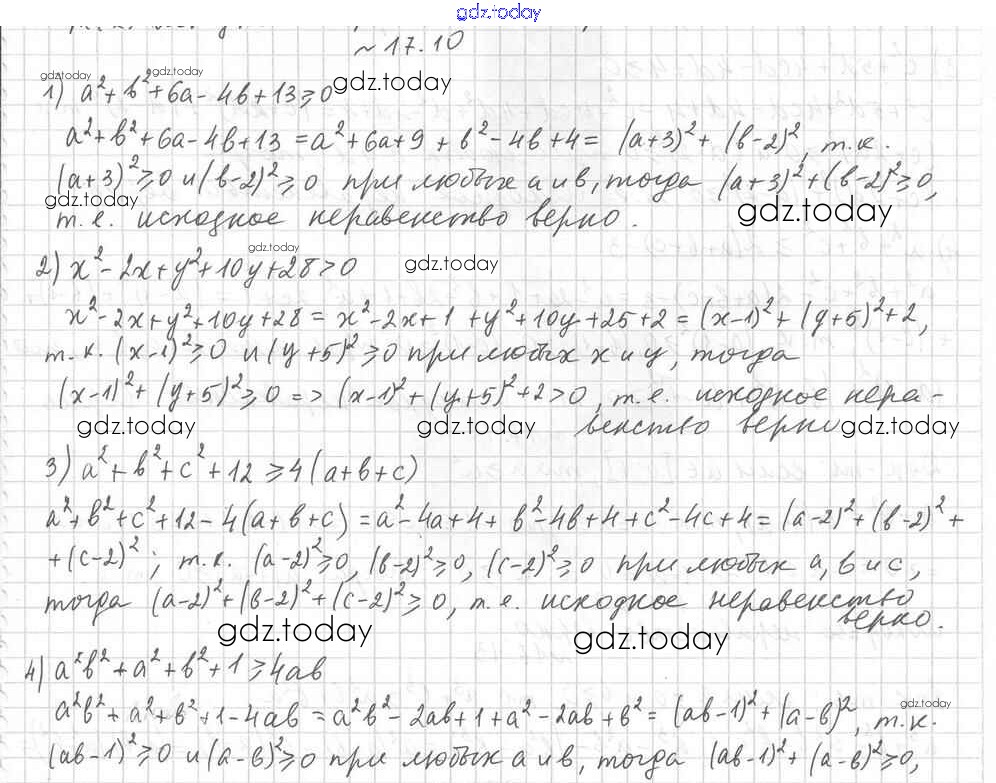 gdz.today
~ 17.10
gdz.today gdz.today gdz.today
1) a²+b²+6a-4b+13≥0
a²+b²+6a-4b+13=a²+6a+9+b²-4b+4=(a+3)²+(b-2)², т.к.
(a+3)²≥0 и (b-2)²≥0 при любых a и b, тогда (a+3)²+(b-2)²≥0,
gdz.today gdz.today
т.е. исходное неравенство верно.
gdz.today gdz.today
2) x²-2x+y²+10y+28>0
x²-2x+y²+10y+28=x²-2x+1+y²+10y+25+2=(x-1)²+(y+5)²+2,
т.к. (x-1)²≥0 и (y+5)²≥0 при любых x и y, тогда
(x-1)²+(y+5)²≥0=>(x-1)²+(y+5)²+2>0, т.е. исходное нера-
венство верно
gdz.today gdz.today gdz.today
3) a²+b²+c²+12≥4(a+b+c)
a²+b²+c²+12-4(a+b+c)=a²-4a+4+b²-4b+4+c²-4c+4=(a-2)²+(b-2)²+
+(c-2)²; т.к. (a-2)²≥0, (b-2)²≥0, (c-2)²≥0 при любых a, b и c,
тогда (a-2)²+(b-2)²+(c-2)²≥0, т.е. исходное неравенство
верно.
gdz.today gdz.today
4) a²b²+a²+b²+1≥4ab
gdz.today
a²b²+a²+b²+1-4ab=a²b²-2ab+1+a²-2ab+b²=(ab-1)²+(a-b)², т.к.
(ab-1)²≥0 и (a-b)²≥0 при любых a и b, тогда (ab-1)²+(a-b)²≥0,